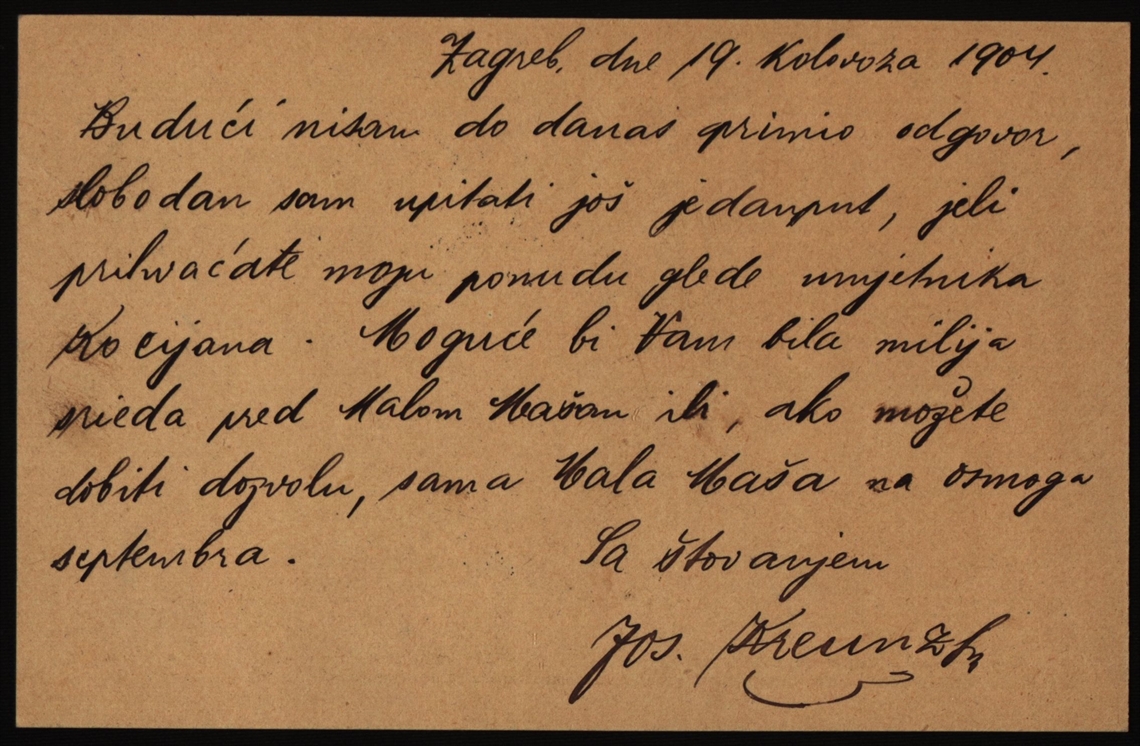 Zagreb, dne 19. Kolovoza 1904.
Budući nisam do danas primio odgovor,
slobodan sam upitati još jedanput, jeli
prihvaćate moju ponudu glede umjetnika
Kocijana. Moguće bi Vam bila milija
srieda pred Malom Mašom ili, ako možete
dobiti dozvolu, sama Mala Maša na osmoga
septembra.
Sa štovanjem
Jos.